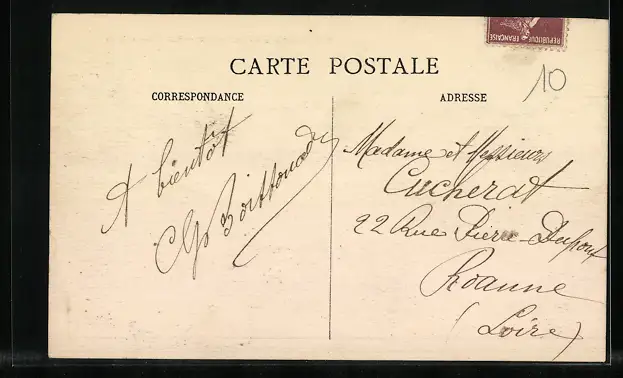 REPUBLIQUE FRANÇAISE
10
CARTE POSTALE
CORRESPONDANCE
ADRESSE
A bientôt
Madame et Messieurs
Cucherat
22 Rue Pierre-Dupont
Roanne
(Loire)